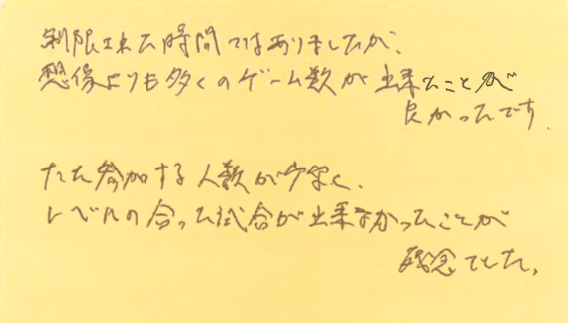 制限された時間ではありましたが、
想像よりも多くのゲーム数が出来たことが
良かったです.
ただ参加する人数が少なく、
レベルの合った試合が出来なかったことが
残念でした。